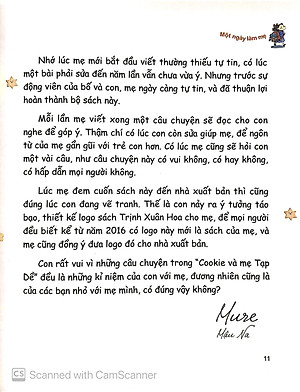 Một ngày làm mẹ
Nhớ lúc mẹ mới bắt đầu viết thường thiếu tự tin, có lúc
một bài phải sửa đến năm lần vẫn chưa vừa ý. Nhưng trước sự
động viên của bố và con, mẹ ngày càng tự tin, và đã thuận lợi
hoàn thành bộ sách này.
Mỗi lần mẹ viết xong một câu chuyện sẽ đọc cho con
nghe để góp ý. Thậm chí có lúc con còn sửa giúp mẹ, để ngôn
từ của mẹ gần gũi với trẻ con hơn. Có lúc mẹ cũng sẽ hỏi con
một vài câu, như câu chuyện này có vui không, có hay không,
có hấp dẫn mọi người không.
Lúc mẹ đem cuốn sách này đến nhà xuất bản thì cũng
đúng lúc con đang vẽ tranh. Thế là con nảy ra ý tưởng táo
bạo, thiết kế logo sách Trịnh Xuân Hoa cho mẹ, để mọi người
đều biết kể từ năm 2016 có logo này mới là sách của mẹ, và
mẹ cũng đồng ý đưa logo đó cho nhà xuất bản.
Con rất vui vì những câu chuyện trong "Cookie và mẹ Tạp
Dề" đều là những kỉ niệm của con với mẹ, đương nhiên cũng là
của các bạn nhỏ với mẹ mình, có đúng vậy không?
Mure
Mậu Na
11
CS Scanned with CamScanner